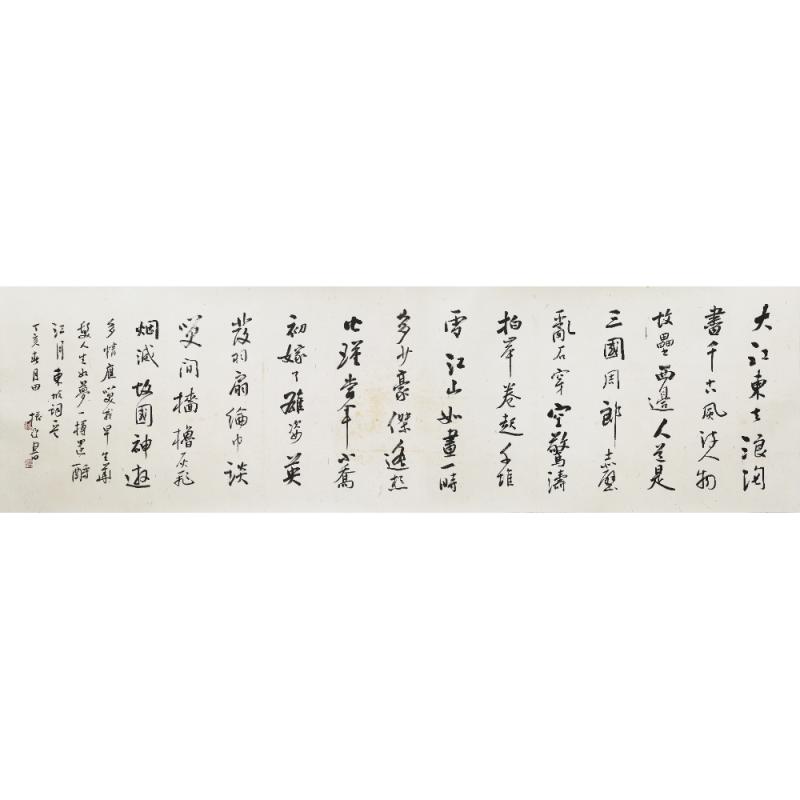 大江東去浪淘
盡千古風流人物
故壘西邊人道是
三國周郎赤壁
亂石穿空驚濤
拍岸卷起千堆
雪江山如畫一時
多少豪傑遙想
公瑾當年小喬
初嫁了雄姿英
發羽扇綸巾談
笑間檣櫓灰飛
烟滅故國神遊
多情應笑我早生華
髮人生如夢一樽還酹
江月 東坡詞
丁亥 月 振 書